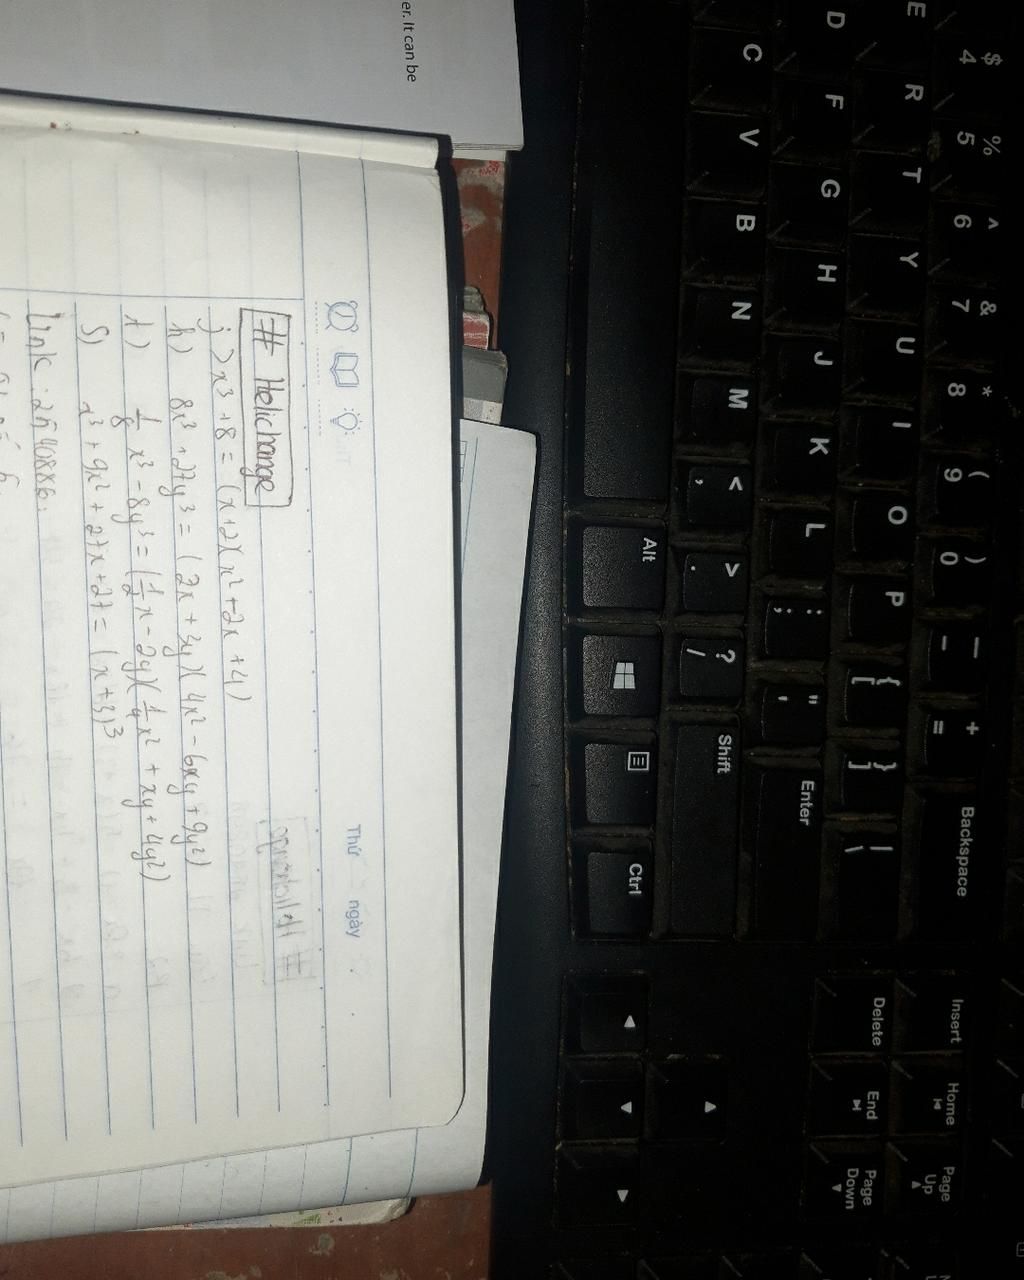 er. It can be
Thứ ngày
# Helichange
j) x³ + 8 = (x+2)(x² + 2x + 4)
h) 8x³ + 27y³ = (2x + 3y)(4x² - 6xy + 9y²)
1) 1/8 x³ - 8y³ = (1/2 x - 2y)(1/4 x² + xy + 4y²)
S) x³ + 9x² + 27x + 27 = (x+3)³
Link: 2540886.
$ 4 % 5 ^ 6 & 7 * 8 ( 9 ) 0 — - + = Backspace
E R T Y U I O P { [ } ] | \
D F G H J K L : ; " ' Enter
C V B N M < , > . ? / Shift
Alt Ctrl
Insert Home Page Up
Delete End Page Down